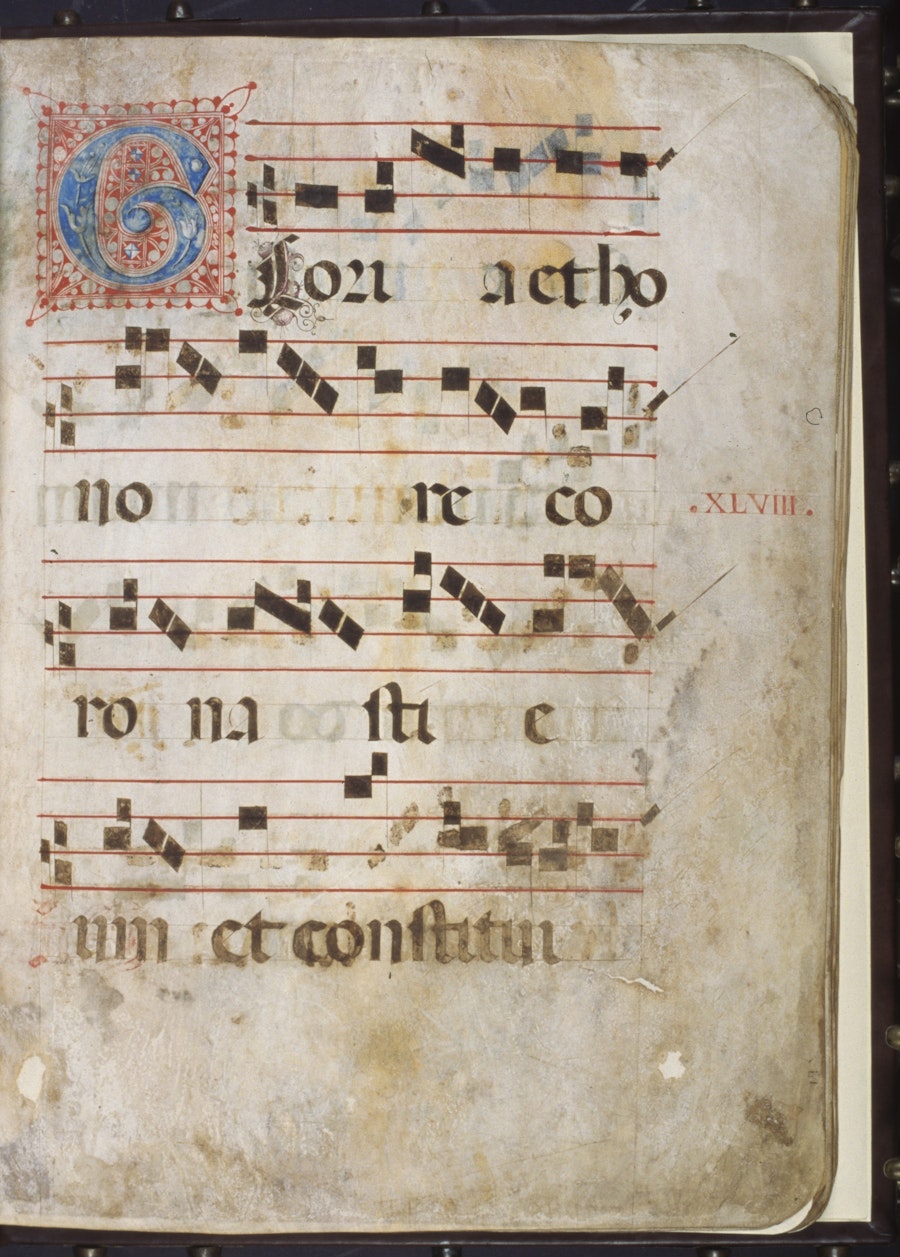 GLori a et ho
no re co
.XLVIII.
ro na sti e
um et constitui